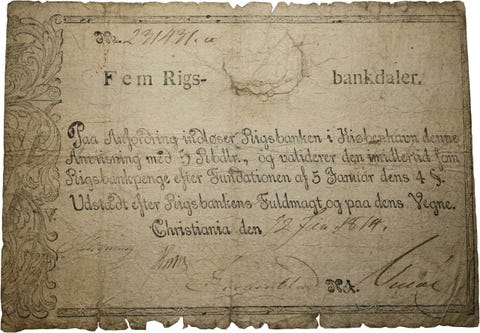 No. 231431.a
Fem Rigs- bankdaler.
Paa Anfordring indløser Rigsbanken i Kiøbenhavn denne
Anviisning med 5 Rbdlr., og validerer den imidlertid som
Rigsbankpenge efter Fundationen af 5 Januar dens 4 §.
Udstædt efter Rigsbankens Fuldmagt og paa dens Vegne.
Christiania den 12 1814.